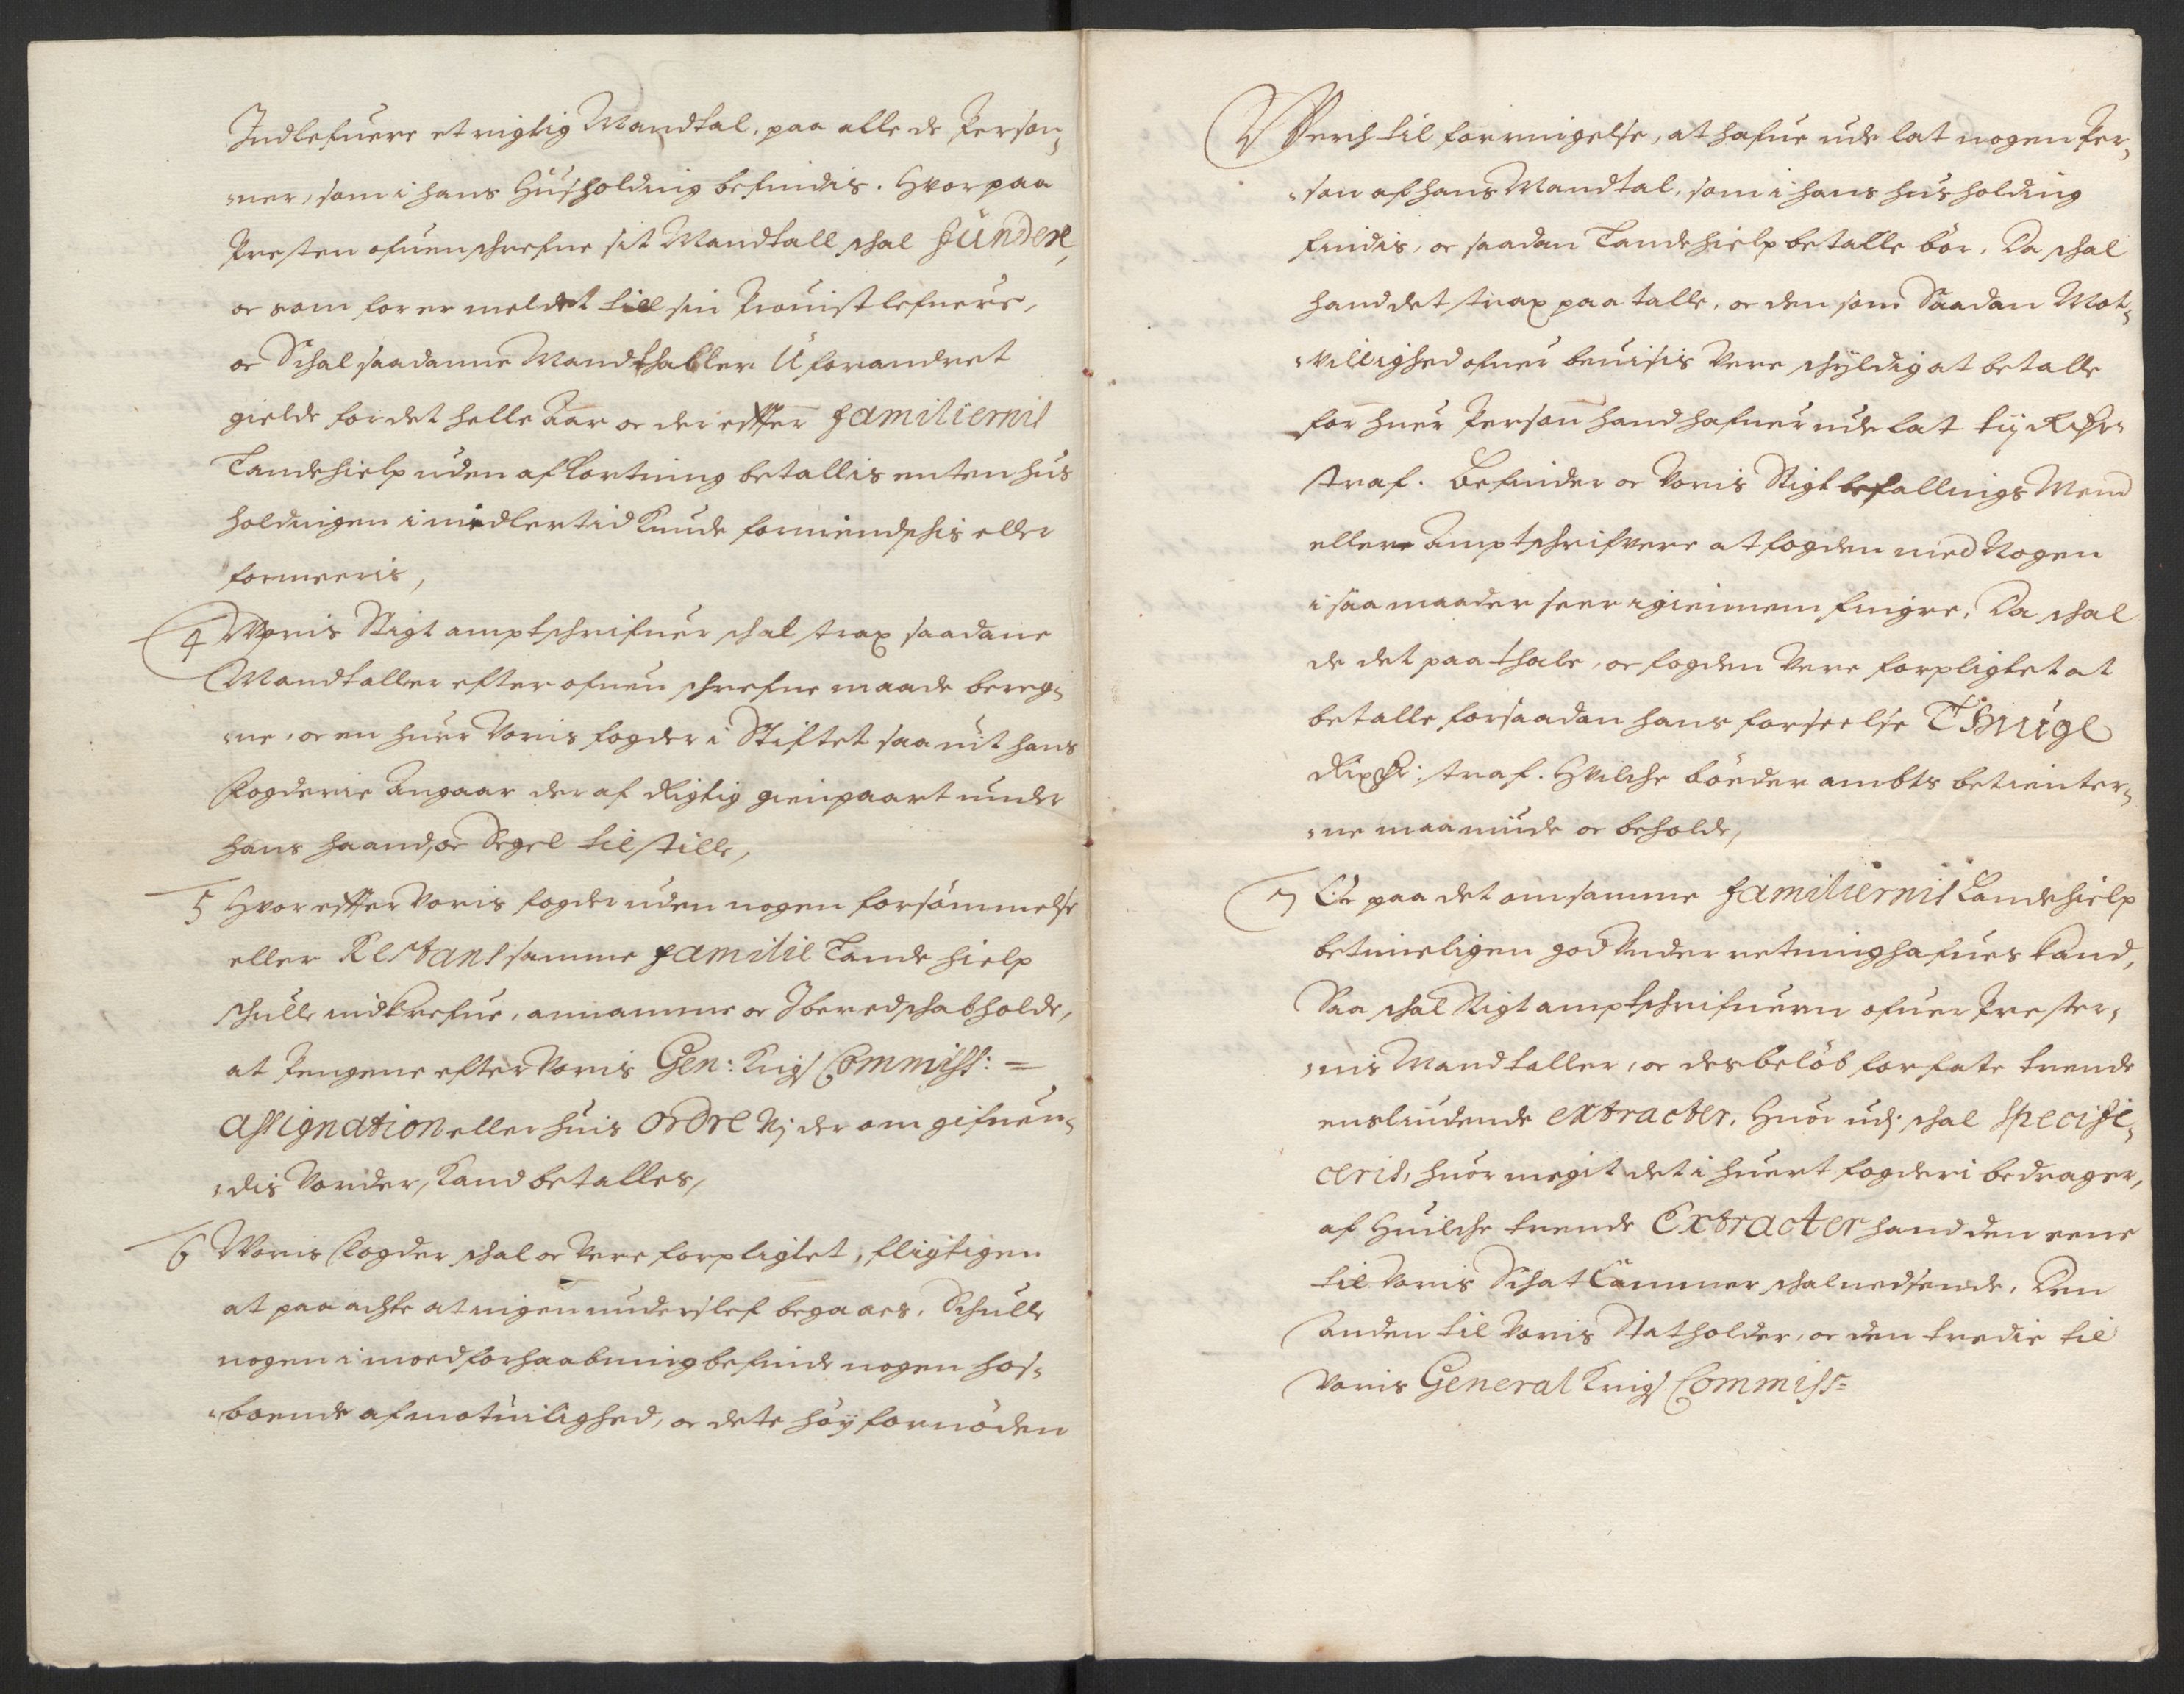 Indlefuere et rigtig Mandtal, paa alle de Person¬
¬ner, som i hans Hußholding befindis. Hvorpaa
Presten ofuenschrefne sit Mandtall schal fundere,
oc som for er meldet till sin Prouist lefuere,
oc Schal saadanne Mandthaller Uforandret
gielde for det helle Aar oc der effter familiernis
Landehielp uden afkortning betallis enten hus
holdingen i midlertid kunde formindschis eller
formeeris,
4 Woris Stigtamptschrifuer schal strax saadane
Mandtaller efter ofuenschrefne maade bereg¬
¬ne, oc en huer Voris fogder i Stiftet saa uit hans
Fogderie Angaar der af Rigtig gienpaart under
hans haand, oc Segel tilstille,
5 Hvoreffter Voris fogder uden nogen forsømmelse
eller Restans samme familie Lande hielp
schulle indkrefue, annamme oc I beredschab holde,
at Pengene efter Voris Gen: Krigs Commiss: =
assignation eller huis ordre Vj der om gifuen¬
¬dis Vorder, Kand betalles,
6 Woris Fogder schal oc Vere forpligtet, fligtigen
at paa achte at ingen underslef begaaes. Schulle
nogen imod forhaabning befinde nogen hos¬
¬boende af motuilighed, oc dete høy fornøden
Verch til forringelse, at hafue udelat nogen Per¬
¬son af hans Mandtal, som i hans husholding
findis, oc saadan Landehielp betalle bør, Da schal
hand det strax paa talle, oc den som Saadan Mot¬
¬villighed ofuer beuisis Vere schyldig at betalle
for huer Person hand hafuer udelat tij Rixdr
straf. Befinder oc Voris Stigtbefallings Mend
ellere Amptschrifvere at fogden med Nogen
i saa maader seer igienem fingre, Da schal
de det paa thale, oc fogden Vere forpligtet at
betalle for saadan hans forseelse Thuige
Rixdr: straf. Hvilche bøeder ambts betienter¬
¬ne maa niude oc beholde,
7 Oc paa det om samme familiernis Landehielp
betimeligen god Underretning hafues kand,
Saa schal Stigtamptschrifueren ofuer Prester¬
¬nis Mandtaller, oc des beløb forfate trende
ensliudende extracter. Huor udj schal specifi¬
ceris, huor megit det i huert fogderi bedrager,
af Huilche trende Extracter hand den eene
til Voris Schat Cammer schal nedsende, Den
Anden til Voris Statholder, oc den tredie til
Voris General Krigs Commiss=